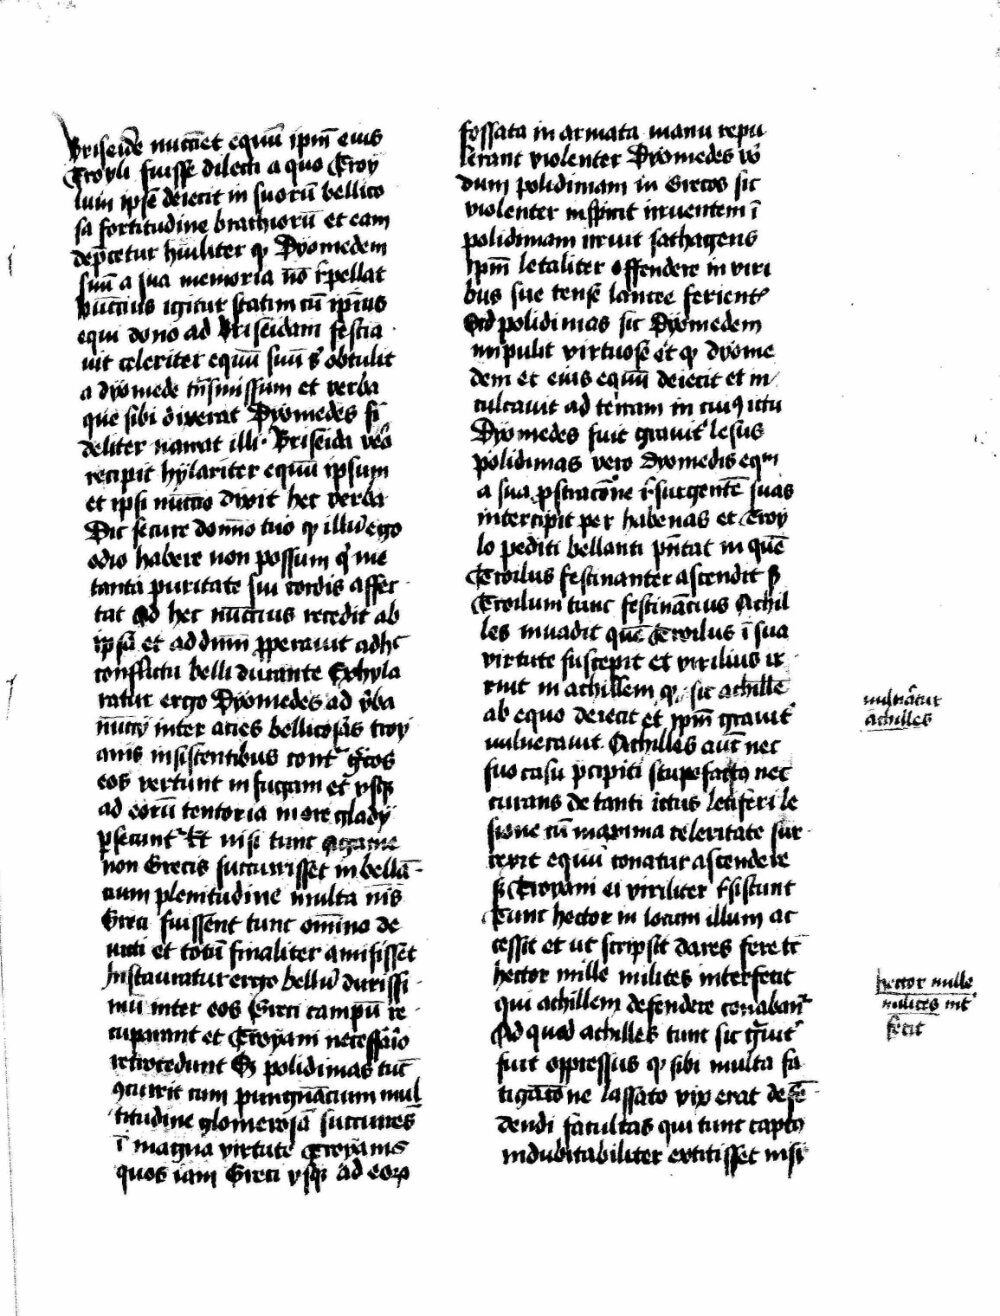 Briseide nuntiet equū ipm̄ eius
Troyli fuisse dilecti a quo Troy
lum ipsē deiecit in suorū bellico
sa fortitudine brachiorū et eam
dep̄cetur hūiliter ꝙ Dyomedem
suū a sua memoria nō r̄pellat
Nuncius igitur statim cū ip̄ius
equi dono ad Briseidam festia
uit celeriter equū suū s̄ obtulit
a dyomede tn̄smissum et verba
que sibi dixerat Dyomedes fi
deliter narrat illi · Briseida v̄o
recipit hylariter equū ipsum
et ipsi nūccio dixit hec verba
Dic secure domīo tuo ꝙ illū ego
odio habere non possum q̄ me
tanta puritate sui cordis affec
tat Ad hec nūccius recedit ab
ip̄a et ad dnm̄ ꝓperauit adhc̄
conflictu belli durante Exhyla
ratur ergo Dyomedes ad v̄ba
nūcij inter acies bellicosas troy
anis insistentibus cont̄ gͤcos
eos vertunt in fugam et vsqꝫ
ad eorū tentoria in ore gladij
ꝑsecunt̄ et nisi tunc agame
non Grecis succurrisset in bellā
cium plenitudine multa nīs
Greci fuissent tunc om̄ino de
uicti et totū finaliter amisissēt
Instauratur ergo bellū durissi
mū inter eos Greci campū re
cuperant et Troyani necess̄io
retrocedunt Et polidimas tūc
ꝯcurrit cum pungnācium mul
titudine glomerosa succurrēs
ī magna virtute Troyanis
quos iam Greci vsqꝫ ad eoꝝ
fossata in armata manu repu
lerant violenter Dyomedes v̄o
dum polidimam in Grecos sic
violenter inspicit irruentem ī
polidimam irruit sathagens
ipm̄ letaliter offendere in viri
bus sue tense lancee ferient̄
Sꝫ polidimas sic Dyomedem
impulit virtuose et ꝙ dyome
dem et eius equū deiecit et in
culcauit ad terram in cuiꝰ ictu
Dyomedes fuit grauit̄ lesus
polidimas vero dyomedis equū
a sua ꝓstracōne r̄surgentē suas
intercipit per habenas et Troy
lo pediti bellanti pn̄tat in quē
Troilus festinanter ascendit sꝫ
Troilum tunc festinācius Achil
les inuadit quē Troilus ī sua
virtute suscepit et virilius ir
ruit in achillem ꝙ sic achillē
ab equo deiecit et ipm̄ grauit̄
vulnerauit Achilles aūt nec
suo casu p̄cipiti stupefactꝰ nec
curans de tanti ictus letiferi le
sione cū maxima celeritate sur
rexit equū conatur ascendere
sꝫ Troyani ei viriliter r̄sistunt
Tunc hector in locum illum ac
cessit et ut scripsit dares fere tc̄
hector mille milites interfecit
qui achillem defendere conabant̄
Ad quod achilles tunc sic ḡuit̄
fuit oppressus ꝙ sibi multa fa
tigacōne lassato vix erat defē
dendi facultas qui tunc captꝰ
indubitabiliter extitisset nisi
vulnēatur
achilles
hector mille
milites int̄
fecit